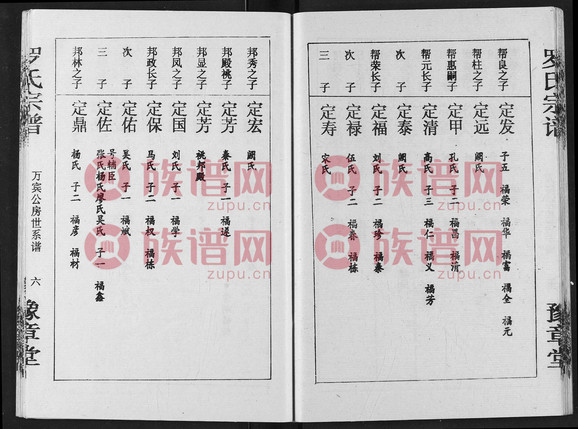 罗氏宗谱
豫章堂
帮良之子 定发 子五 福荣 福华 福富 福全 福元
帮柱之子 定远 阙氏
帮惠嗣子 定甲 孔氏 子二 福昌 福清
帮元长子 定清 高氏 子三 福仁 福义 福芳
次子 定泰 阙氏
帮荣长子 定福 刘氏 子二 福珍 福泰
次子 定禄 伍氏 子二 福春 福栋
三子 定寿 宋氏
邦秀之子 定宏 阙氏
邦殿祧子 定芳 秦氏 子一 福遂
邦显之子 定芳 祧邦殿
邦凤之子 定国 刘氏 子一 福学
邦政长子 定保 马氏 子二 福权 福栋
次子 定佑 吴氏 子一 福斌
三子 定佐 号辅臣 张氏杨氏廖氏吴氏 子一 福鑫
邦林之子 定鼎 杨氏 子二 福彦 福材
罗氏宗谱
万宾公房世系谱
六
豫章堂
族谱网
zupu.cn
族谱网
zupu.cn
族谱网
zupu.cn
族谱网
zupu.cn